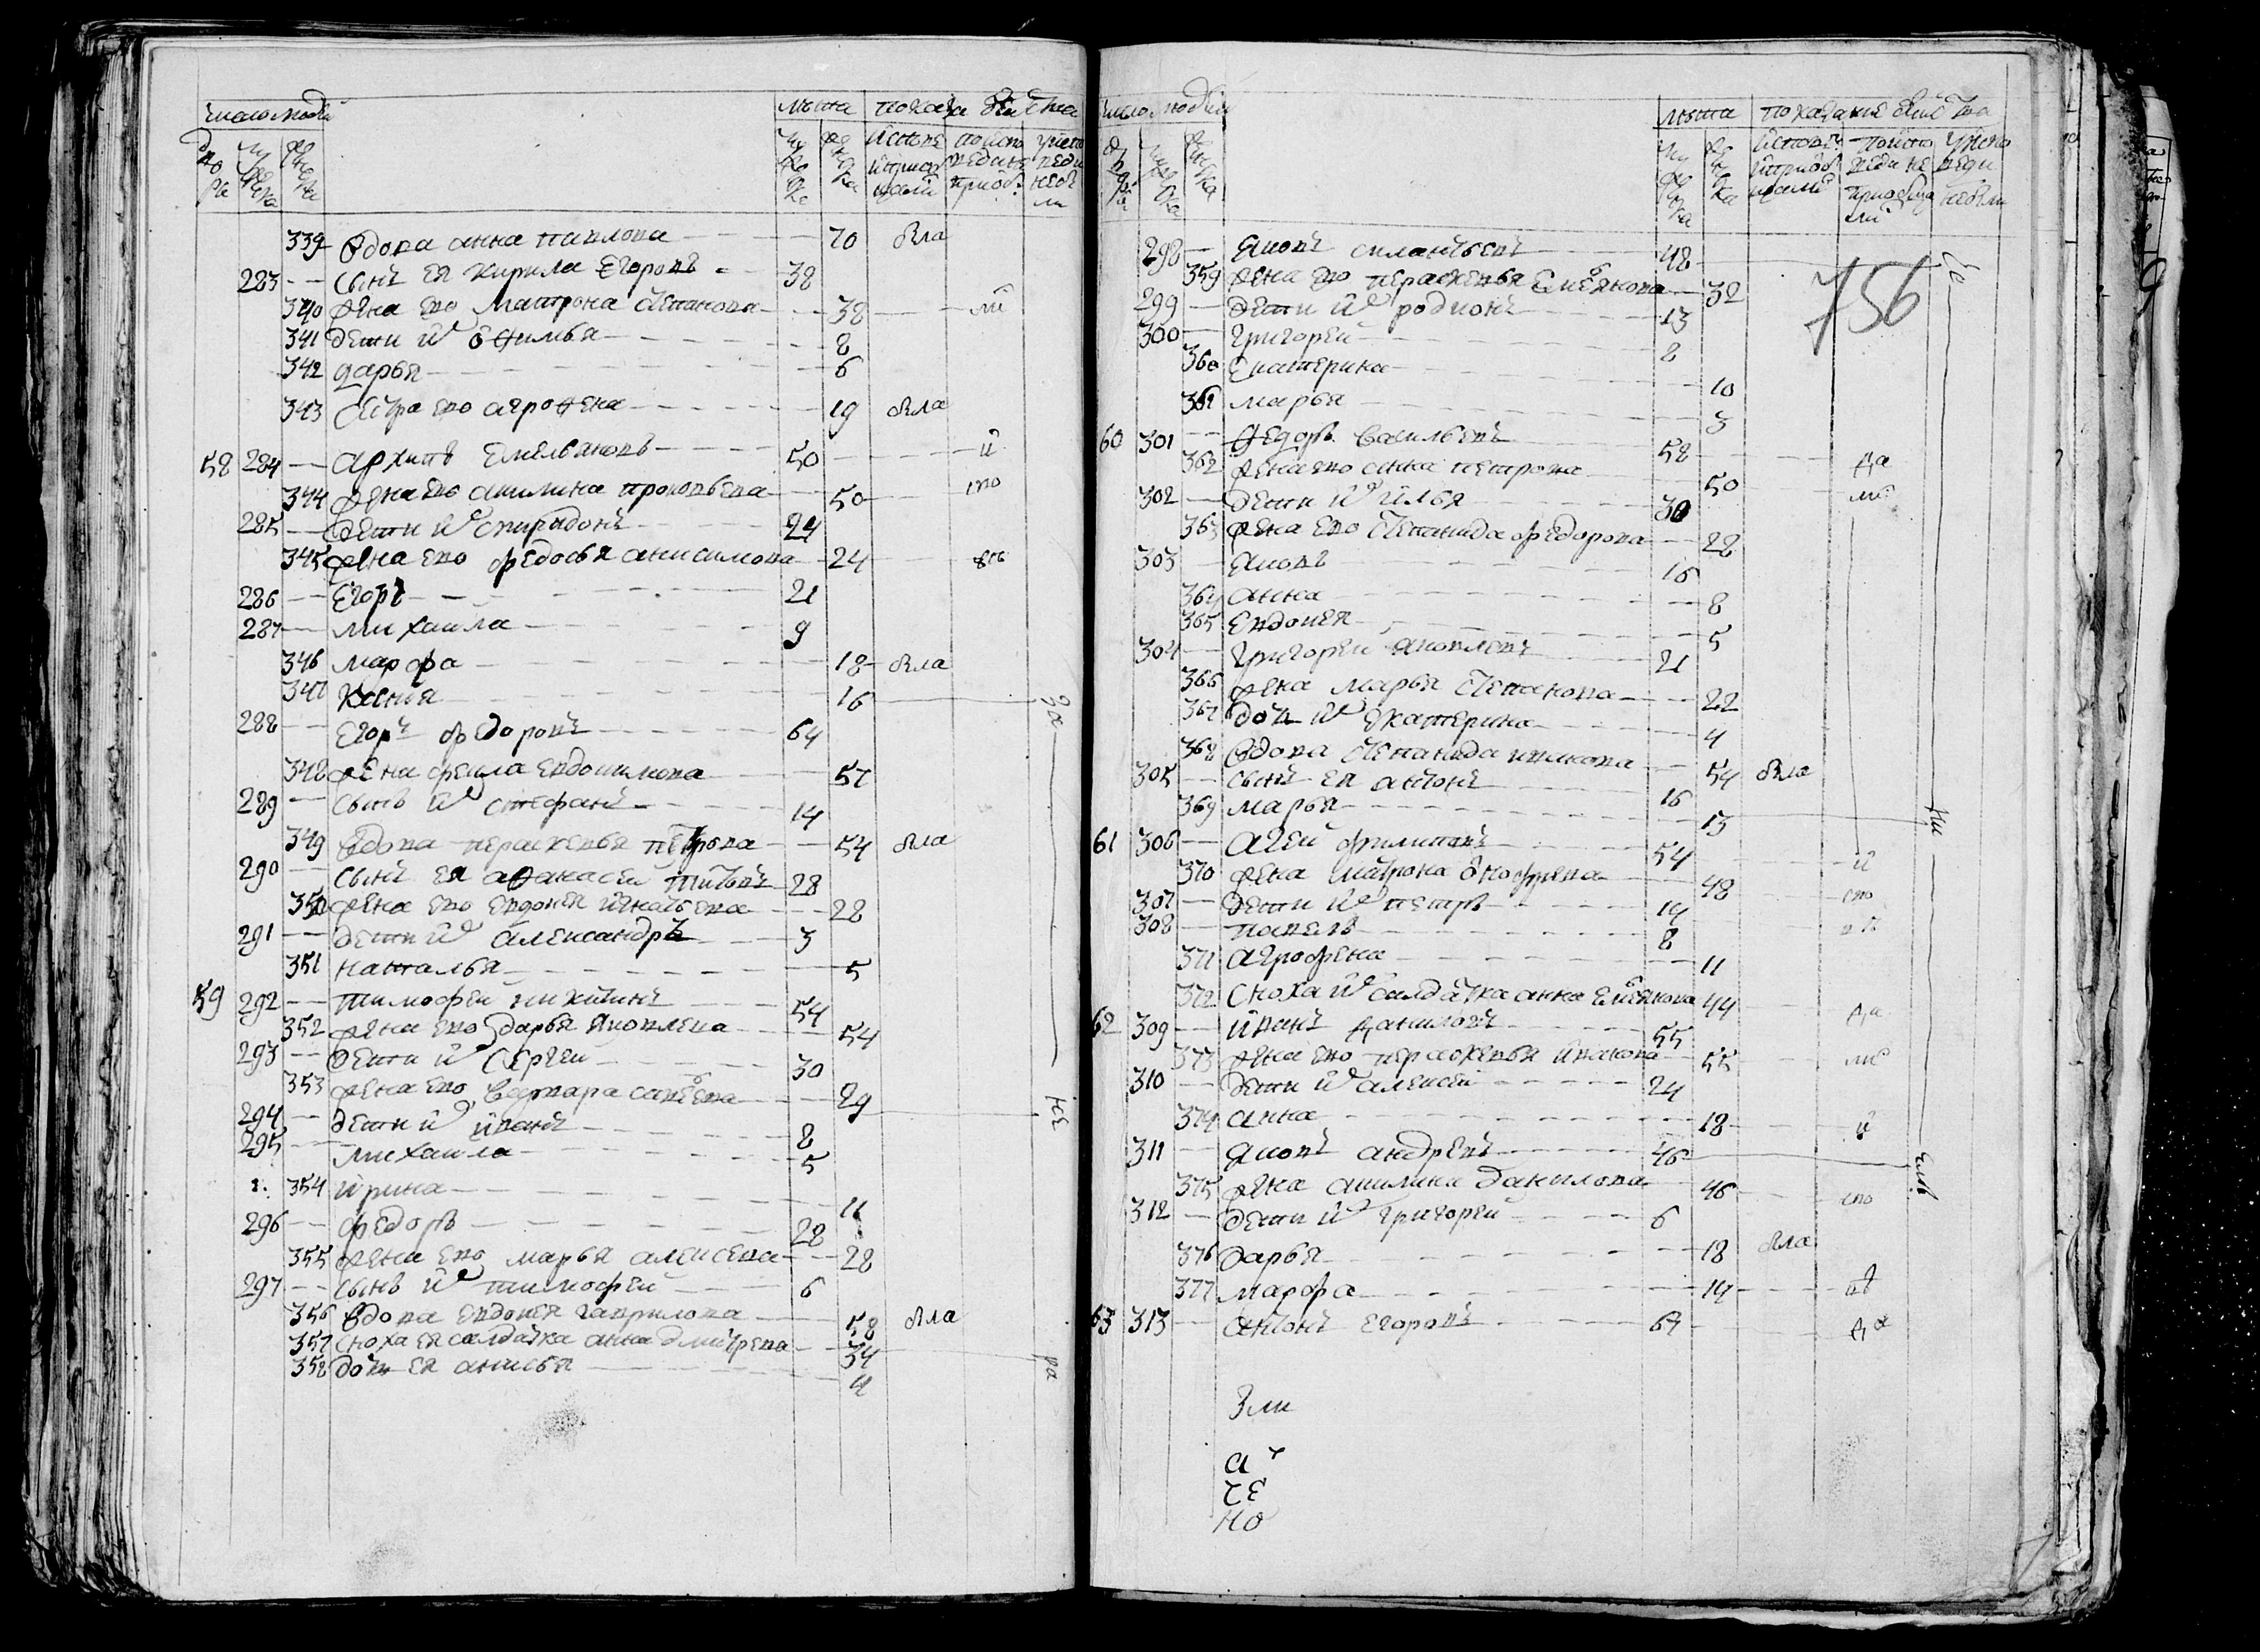 число людей лѣта показа дѣйства
339 вдова анна павлова 70 была
283 сынъ ея кирила Егоровъ 38
340 жена ево матрона степанова 38 ли
341 дети ихъ офимья 8
342 дарья 6
343 сестра ево агрофена 19 была
58 284 архипъ Емельяновъ 50 и
344 жена ево акилина прокопьева 50 спо
285 дети ихъ спиридонъ 24
345 жена ево федосья анисимова 24
286 Егоръ 21
287 михаила 9
346 марфа 18 была
347 Ксенья 16
288 Егоръ федоровъ 64
348 жена фекла евдокимова 57
289 сынъ ихъ стефанъ 14
349 вдова парасковья петрова 54 была
290 сынъ ея афанасеи титовъ 28
350 жена ево евдокея игнатьева 28
291 дети ихъ александръ 3
351 наталья 5
59 292 тимофеи никитинъ 54
352 жена ево дарья яковлева 54
293 дети ихъ Сергеи 30
353 жена ево варвара савеева 29
294 дети ихъ иванъ 8
295 михаила 5
354 ирина 11
296 федоръ 28
355 жена ево марья алексеева 28
297 сынъ ихъ тимофеи 6
356 вдова евдокея гаврилова 58 была
357 сноха ея салдатка анна дмитрева 34
358 дочь ея анисья 4
число людей лѣта показание дѣйства
756
298 яковъ силантьевъ 48
359 жена ево парасковья Емельянова 32
299 дети ихъ родионъ 13
300 григореи 8
360 Екатерина 10
361 марья 3
60 301 федоръ васильевъ 58 да
362 жена ево анна петрова 50 ли
302 дети ихъ илья 30
363 жена ево степанида федорова 28
303 яковъ 16
364 анна 8
365 Евдокея 5
304 григореи яковлевъ 21
366 жена марья степанова 22
367 дочь ихъ екатерина 4
368 вдова степанида ивакова 54 была
305 сынъ ея антонъ 16
369 марья 13
61 306 агеи филиповъ 54 и
370 жена матрона онофрева 48 спо
307 дети ихъ петръ 14
308 павелъ 8
371 агрофена 11
372 сноха ихъ салдатка анна Емельянова 44
62 309 иванъ даниловъ 55 да
373 жена ево парасковья иванова 55 ли
310 дети ихъ алексеи 24
374 анна 18 и
311 яковъ андреевъ 46
375 жена акилина данилова 46 спо
312 дети ихъ григореи 6
376 дарья 18 была
377 марфа 14
63 313 антонъ егоровъ 64 да